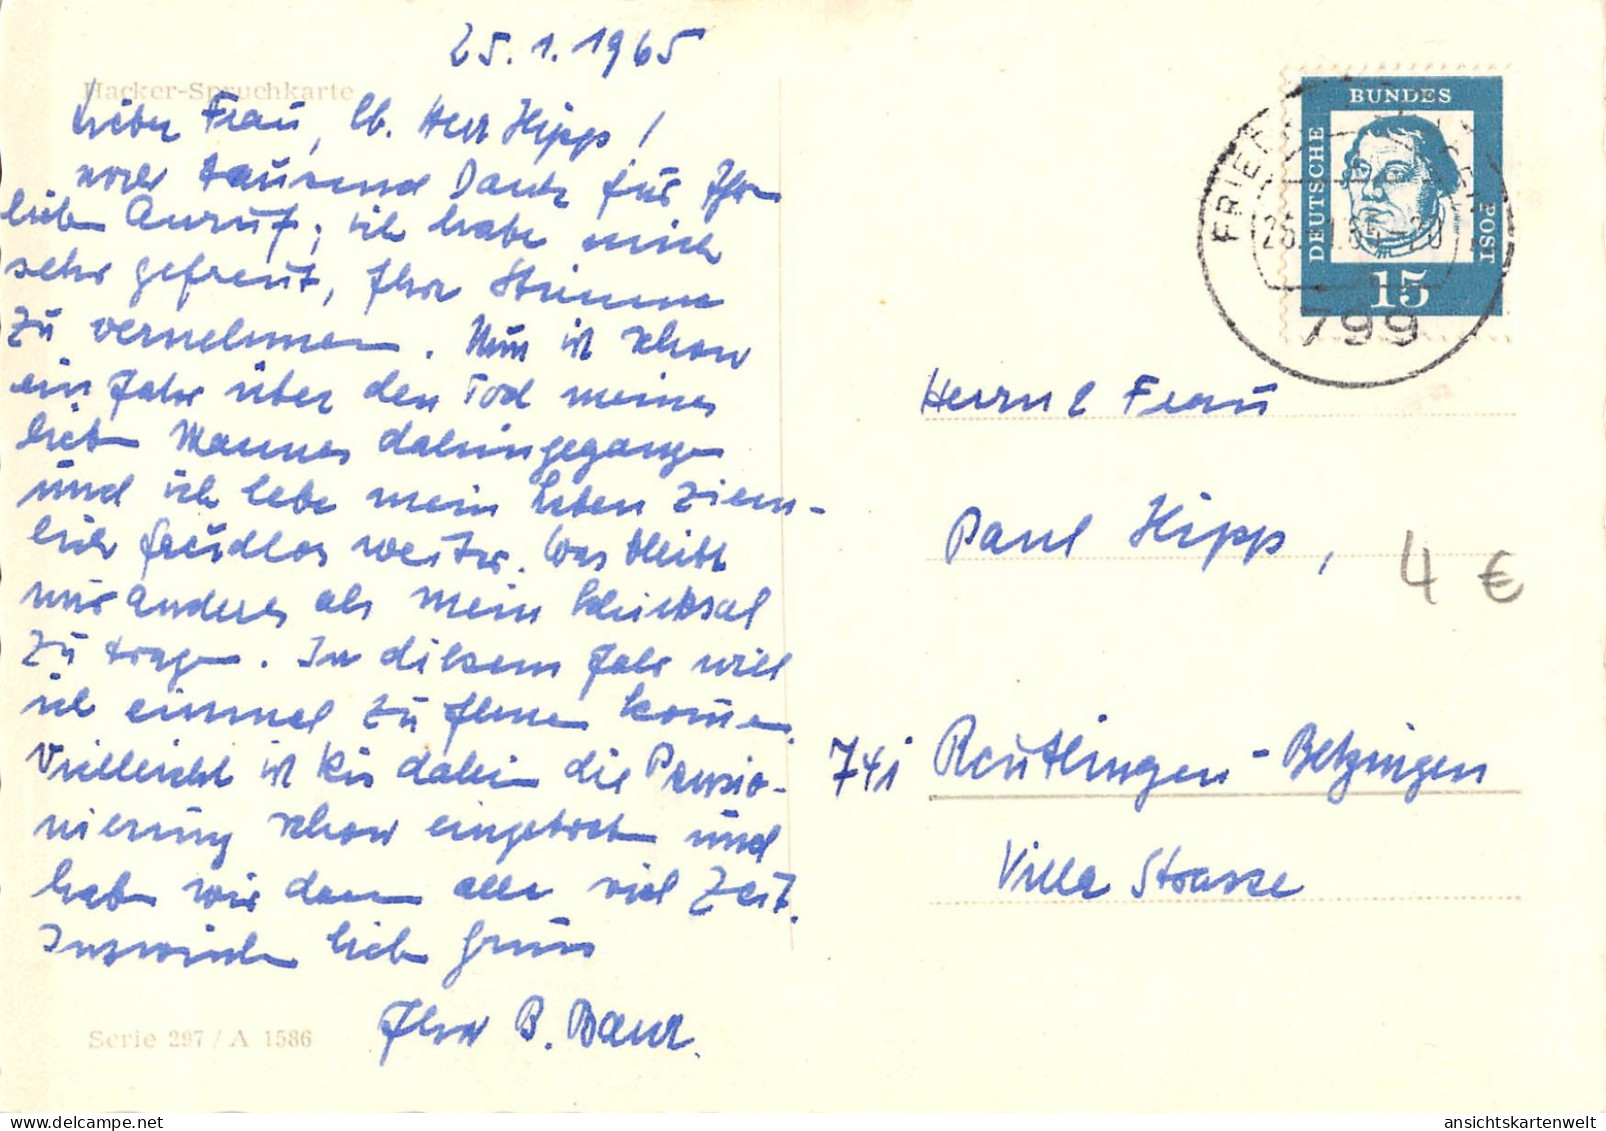 25.1.1965
Hacker-Spruchkarte
Liebe Frau, lb. Herr Hipp!
noch tausend Dank für Ihren
lieben Anruf; ich habe mich
sehr gefreut, Ihre Stimme
zu vernehmen. Nun ist schon
ein Jahr über den Tod meines
lieben Mannes dahingegangen
und ich lebe mein Leben ziem-
lich freudlos weiter. Was bleibt
mir anderes als mein Schicksal
zu tragen. In diesem Jahr will
ich einmal zu Ihnen kommen.
Vielleicht ist bis dahin die Pensio-
nierung schon eingetreten und
haben wir dann alle viel Zeit.
Inzwischen liebe Grüße
Ihre B. Baur.
Serie 297 / A 1586
DEUTSCHE
BUNDES
POST
15
799
Herrn & Frau
Paul Hipp,
4 €
741 Reutlingen-Betzingen
Villa Strasse
ansichtskartenwelt